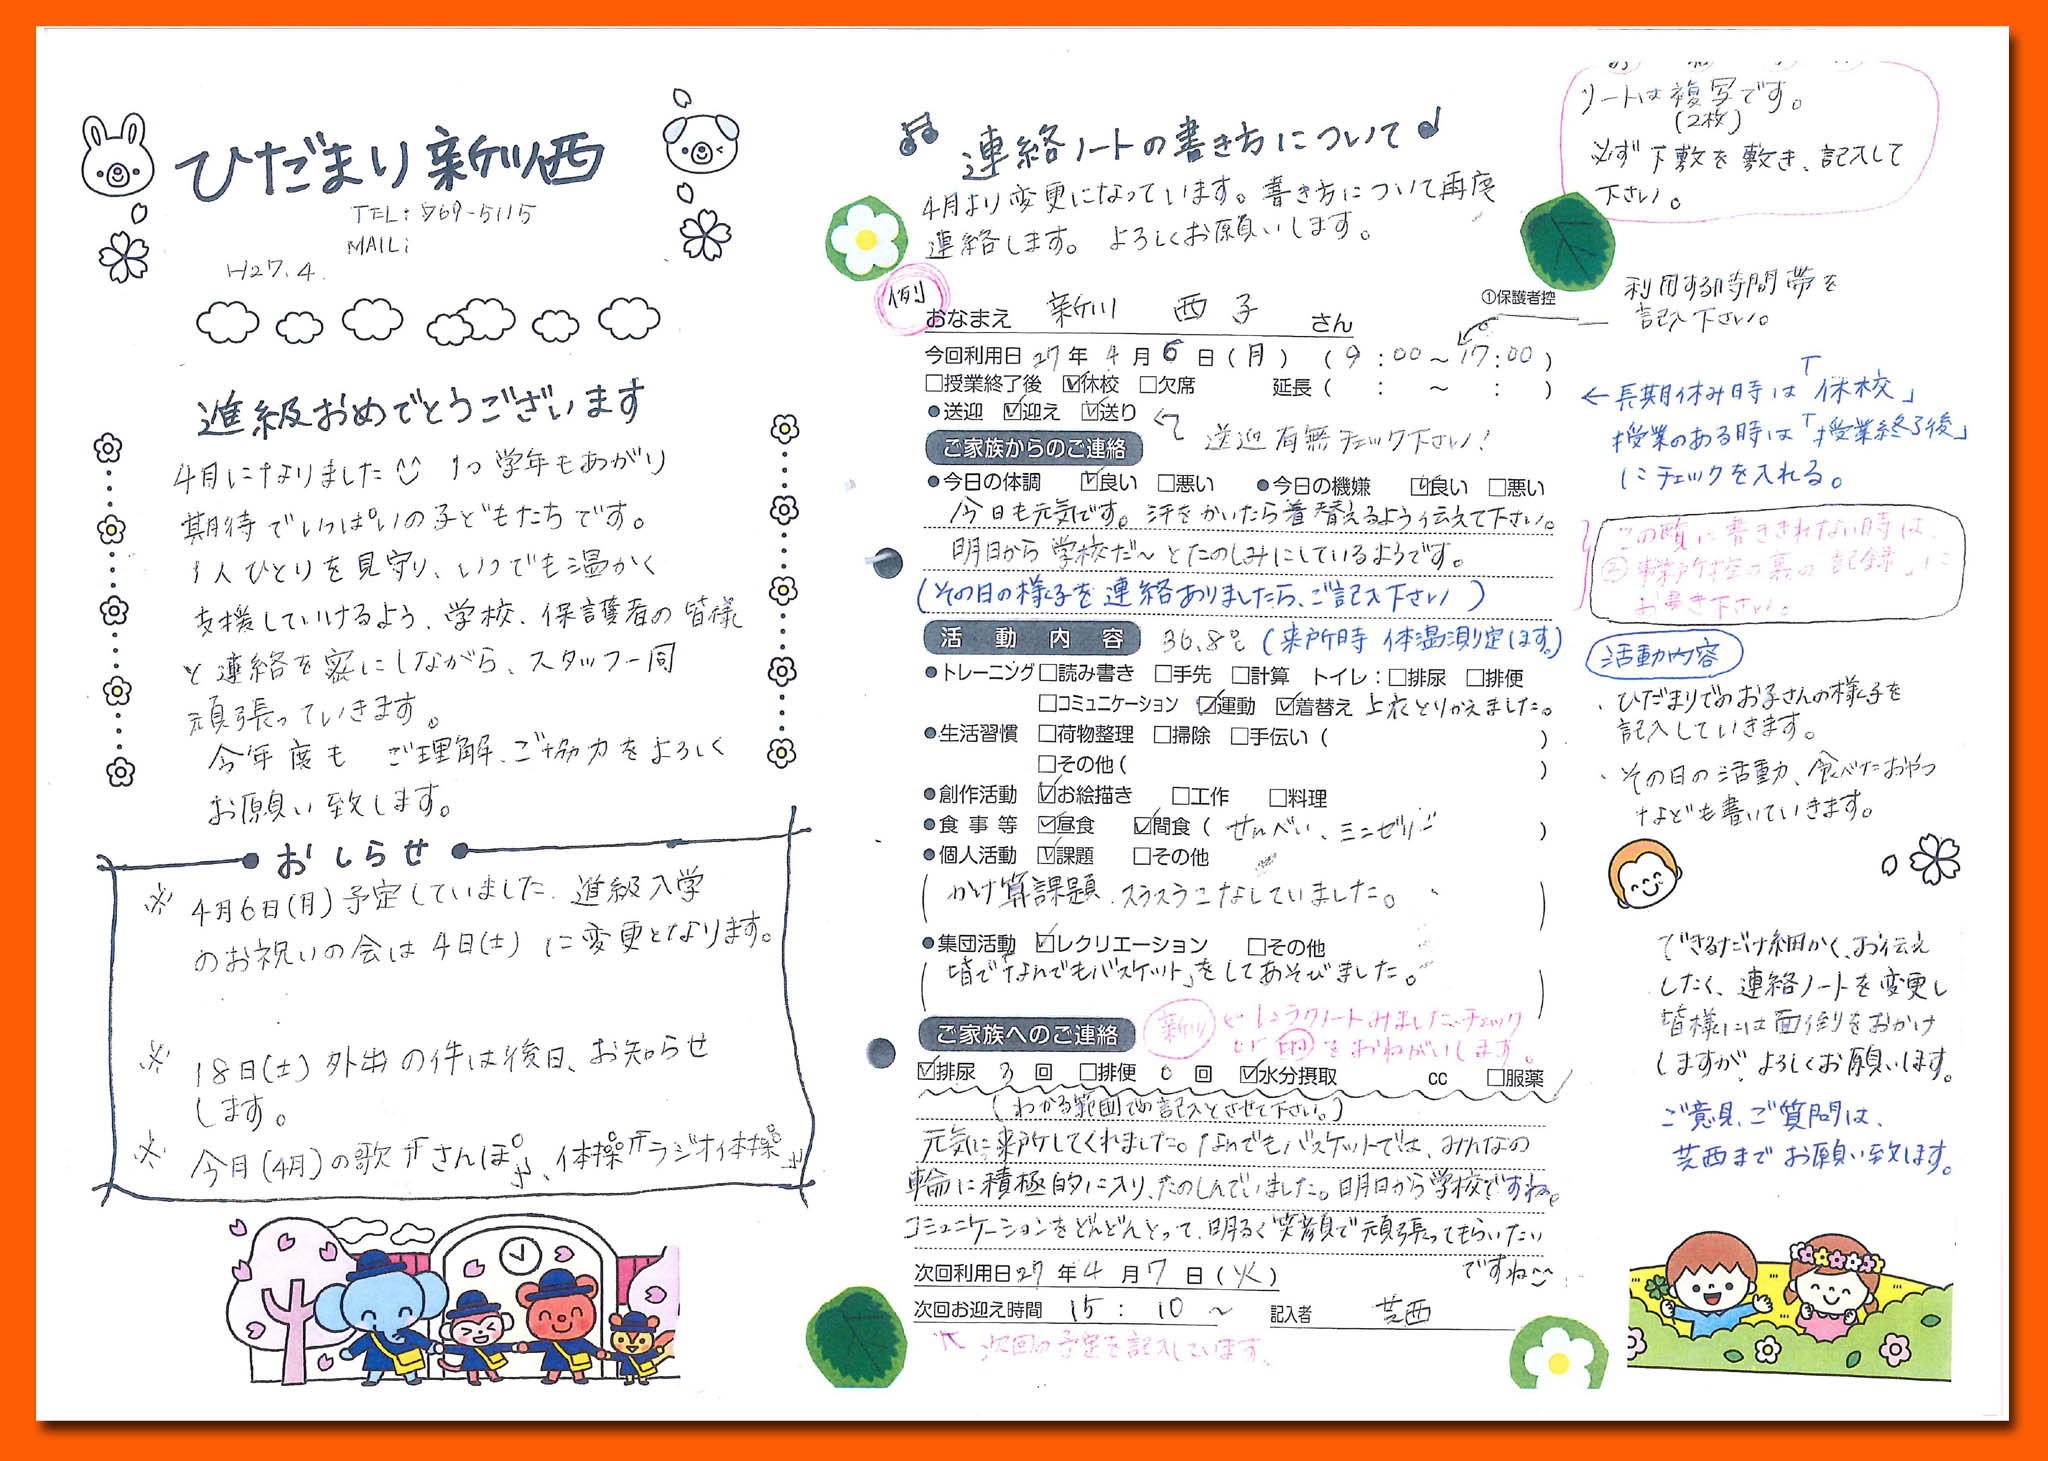 ひだまり新川西
TEL: 869-5115
MAIL:
H27.4.
進級おめでとうございます
4月になりました 1つ学年もあがり
期待でいっぱいの子どもたちです。
1人ひとりを見守り、いつでも温かく
支援していけるよう、学校、保護者の皆様
と連絡を密にしながら、スタッフ一同
頑張っていきます。
今年度も ご理解、ご協力をよろしく
お願い致します。
おしらせ
※ 4月6日(月)予定していました 進級入学
のお祝いの会は4日(土) に変更となります。
※ 18日(土)外出の件は後日、お知らせ
します。
※ 今月(4月)の歌『さんぽ』、体操『ラジオ体操』
連絡ノートの書き方について
4月より変更になっています。書き方について再度
連絡します。 よろしくお願いします。
例
①保護者控
おなまえ 新川 西子 さん
今回利用日 27年 4月 6日(月) (9:00~17:00)
□授業終了後 ☑休校 □欠席 延長( : ~ : )
●送迎 ☑迎え ☑送り ← 送迎有無チェック下さい!
ご家族からのご連絡
●今日の体調 ☑良い □悪い ●今日の機嫌 ☑良い □悪い
今日も元気です。汗をかいたら着替えるよう伝えて下さい。
明日から学校だ~とたのしみにしているようです。
(その日の様子を連絡ありましたら、ご記入下さい)
活動内容 36.8℃ (来所時 体温測定します)
●トレーニング □読み書き □手先 □計算 トイレ:□排尿 □排便
□コミュニケーション ☑運動 ☑着替え 上衣とりかえました。
●生活習慣 □荷物整理 □掃除 □手伝い( )
□その他( )
●創作活動 ☑お絵描き □工作 □料理
●食事等 ☑昼食 ☑間食(せんべい、ミニゼリー)
●個人活動 ☑課題 □その他
(かけ算課題、スラスラこなしていました。)
●集団活動 ☑レクリエーション □その他
(皆で「なんでもバスケット」をしてあそびました。)
ご家族へのご連絡 新川 ← レンラクノートみました チェック
or 印をおねがいします。
☑排尿 3回 □排便 0回 ☑水分摂取 cc □服薬
(わかる範囲での記入とさせて下さい。)
元気に来所してくれました。なんでもバスケットでは、みんなの
輪に積極的に入り、たのしんでいました。明日から学校ですね。
コミュニケーションをどんどんとって、明るく笑顔で頑張ってもらいたい
ですね
次回利用日 27年 4月 7日(火)
次回お迎え時間 15:10 ~ 記入者 芸西
↖ 次回の予定を記入しています。
ノートは複写です。
(2枚)
必ず下敷を敷き、記入して
下さい。
利用する時間帯を
記入下さい。
←長期休み時は「休校」
授業のある時は「授業終了後」
にチェックを入れる。
この欄に書ききれない時は、
②事業所控の裏の「記録」に
お書き下さい。
活動内容
・ひだまりでのお子さんの様子を
記入していきます。
・その日の活動、食べたおやつ
なども書いていきます。
できるだけ細かく、お伝え
したく、連絡ノートを変更し
皆様には面倒をおかけ
しますが よろしくお願いします。
ご意見、ご質問は、
芸西までお願い致します。